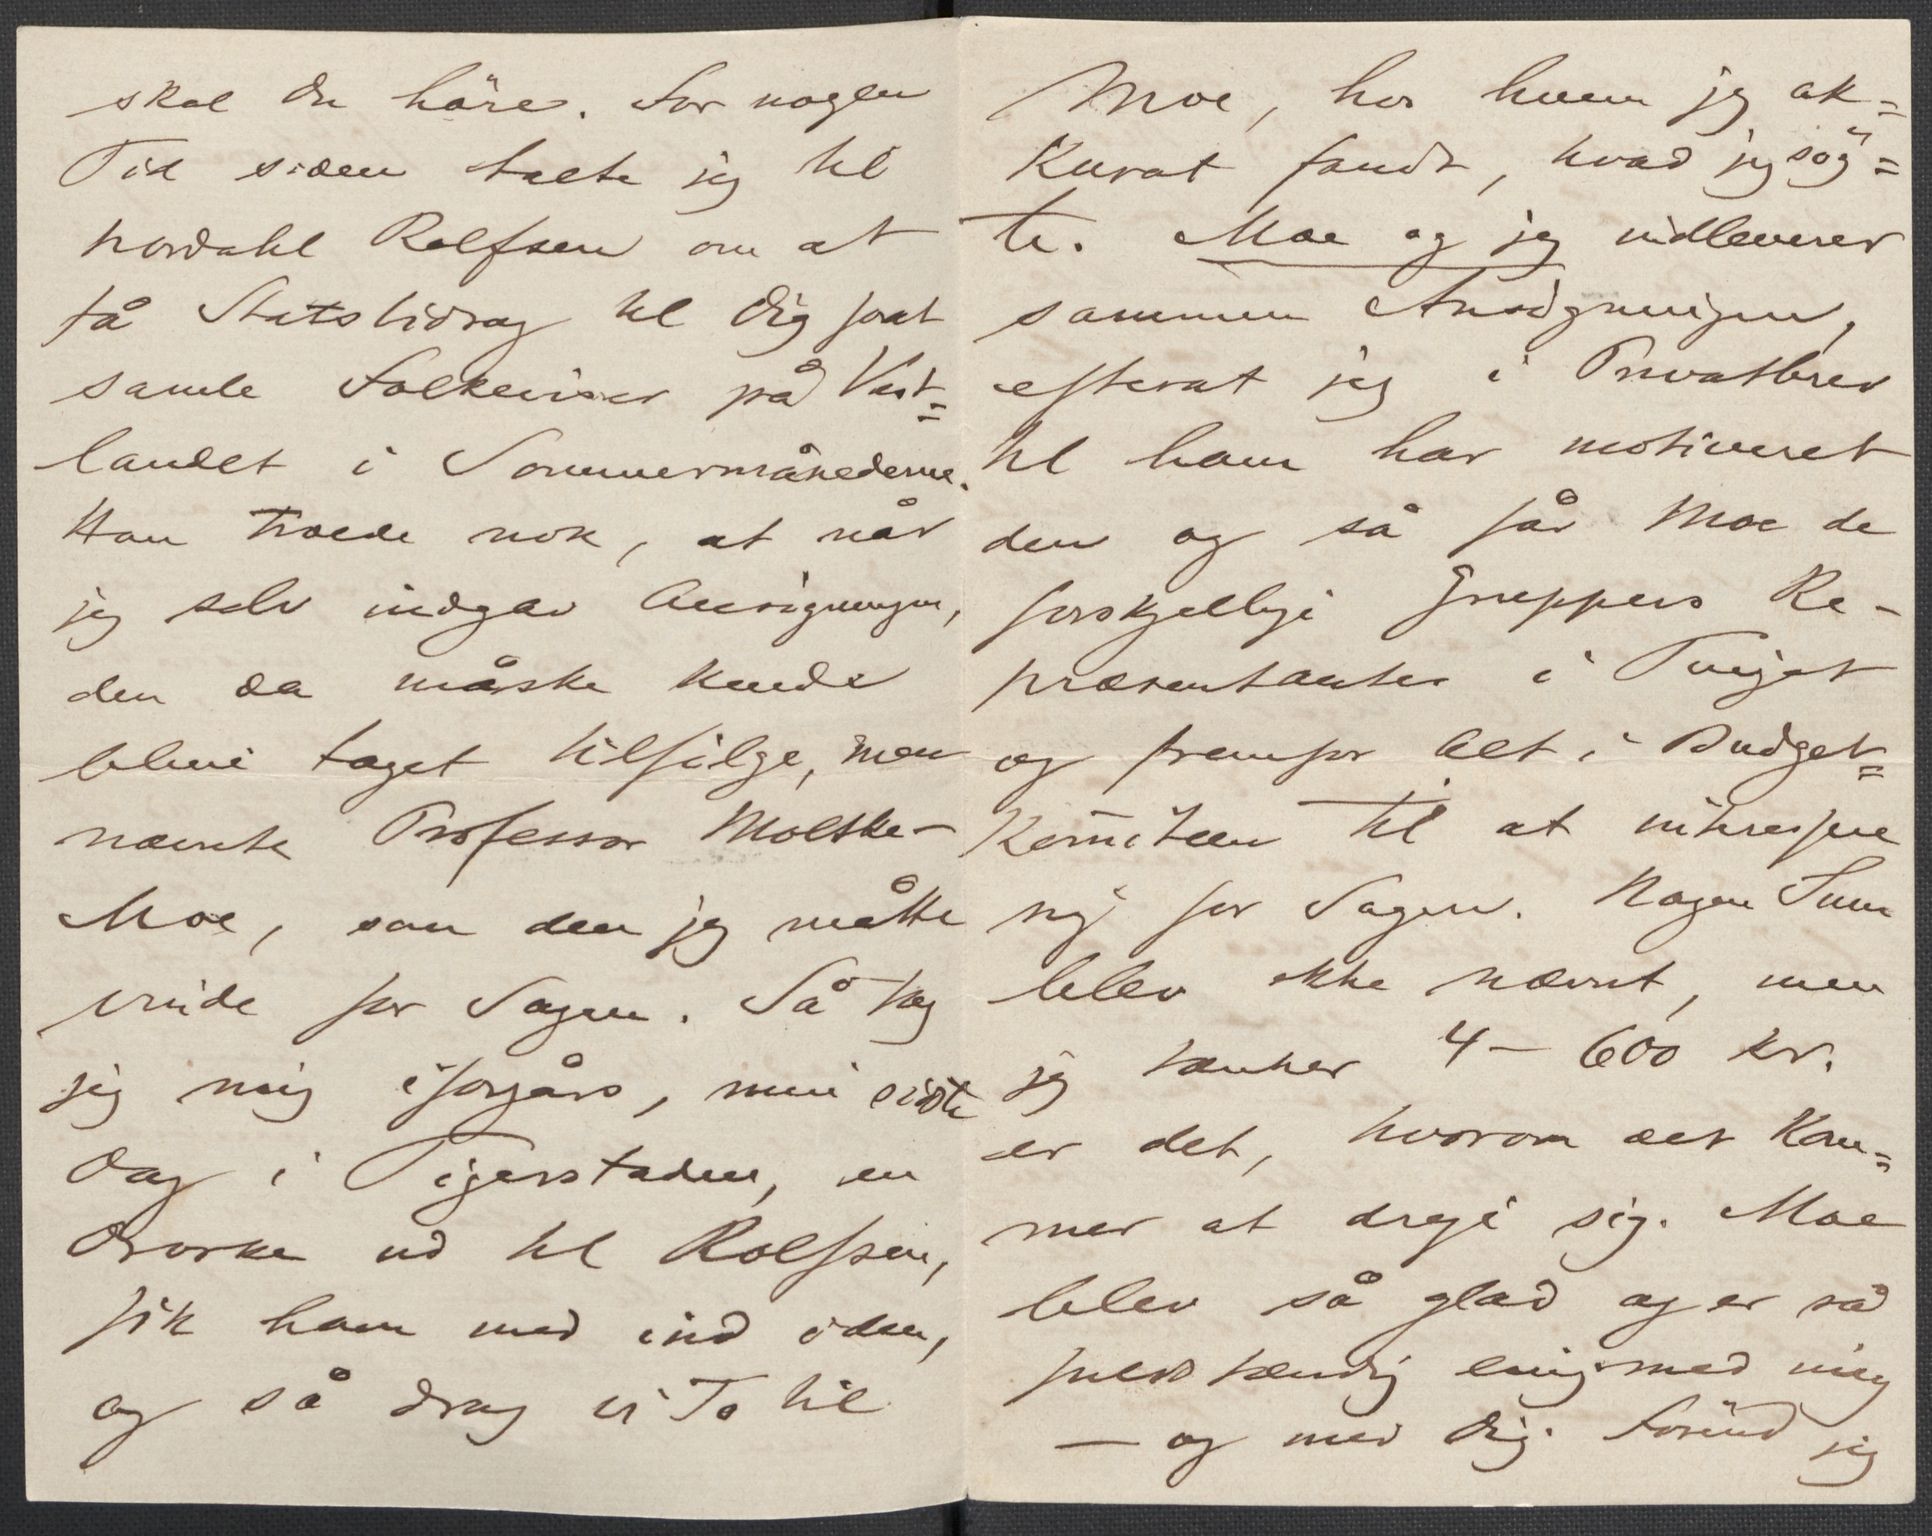 skal du höre. For nogen
Tid siden talte jeg til
Nordahl Rolfsen om at
få Statsbidrag til Dig for at
samle Folkeviser på Vest=
landet i Sommermånederne.
Han troede nok, at når
jeg selv indgav Ansögningen,
den da måske kunde
blive taget tilfölge, men
nævnte Professor Moltke-
Moe, som den jeg måtte
vinde for Sagen. Så tog
jeg mig iforgårs, min sidste
Dag i Tigerstaden, en
Droske ud til Rolfsen,
fik ham med ind i den,
og så drog vi To til
Moe, hos hvem jeg ak=
kurat fandt, hvad jeg sög=
te. Moe og jeg indleverer
sammen Ansögningen,
efterat jeg i Privatbrev
til ham har motiveret
den og så får Moe de
forskjellige Gruppers Re-
præsentanter i Tinget
og fremfor Alt i Budget=
komiteen til at interessere
sig for Sagen. Nogen Sum
blev ikke nævnt, men
jeg tænker 4 – 600 Kr.
er det, hvorom det kom=
mer at dreje sig. Moe
blev så glad og er så
fuldstændig enig med mig
– og med Dig. Forend jeg